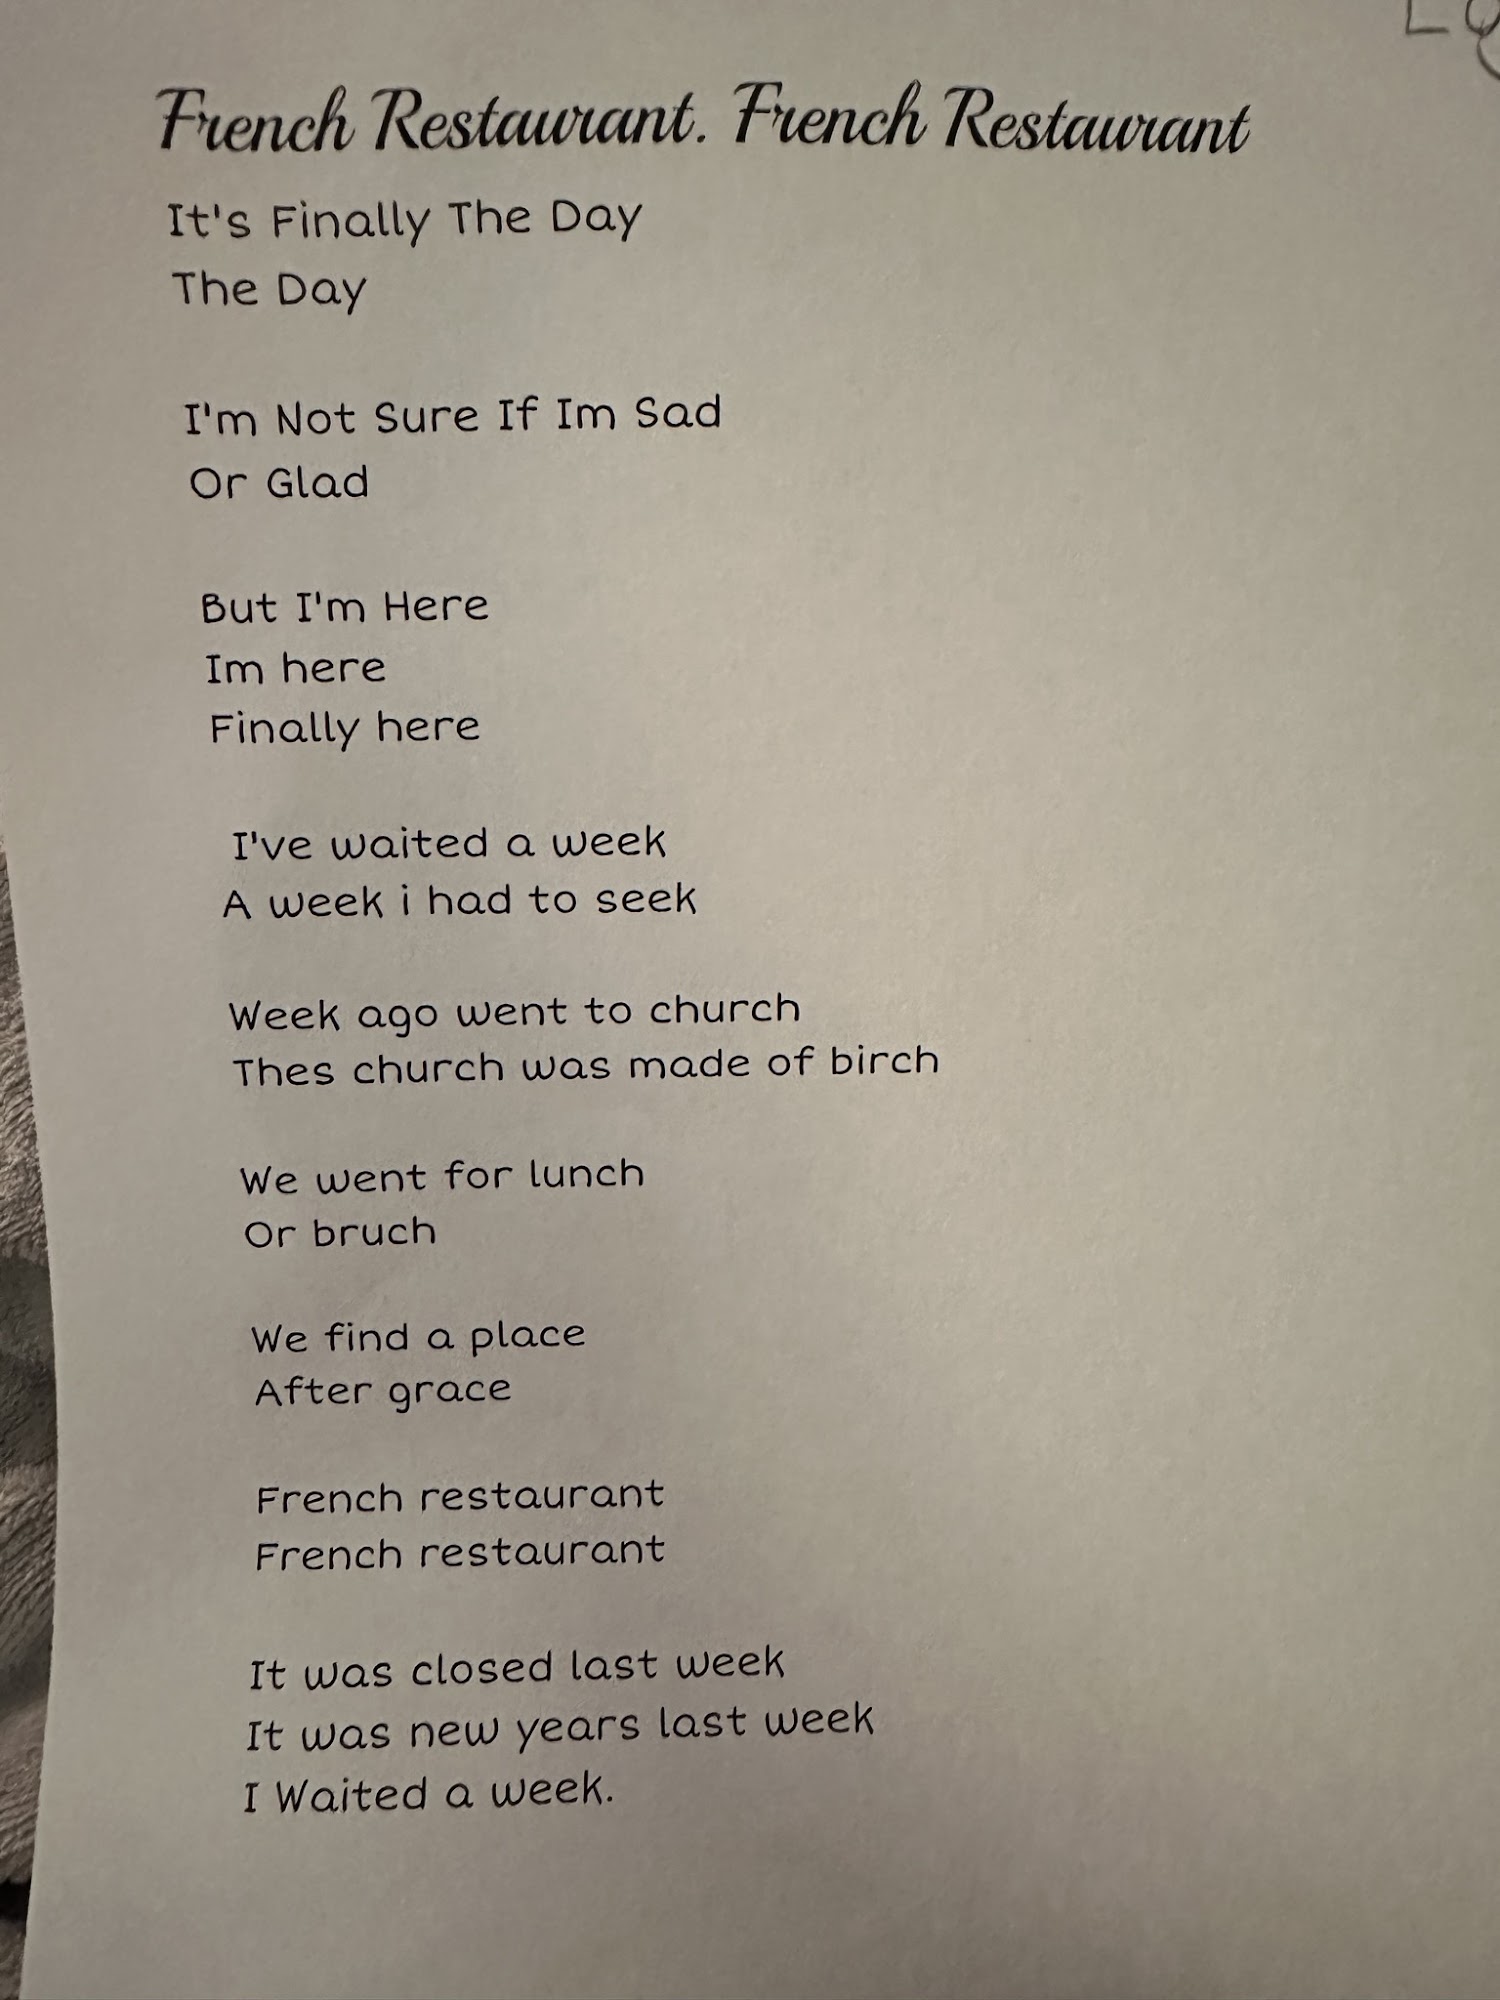 French Restaurant. French Restaurant
It's Finally The Day
The Day
I'm Not Sure If Im Sad
Or Glad
But I'm Here
Im here
Finally here
I've waited a week
A week i had to seek
Week ago went to church
Thes church was made of birch
We went for lunch
Or bruch
We find a place
After grace
French restaurant
French restaurant
It was closed last week
It was new years last week
I Waited a week.